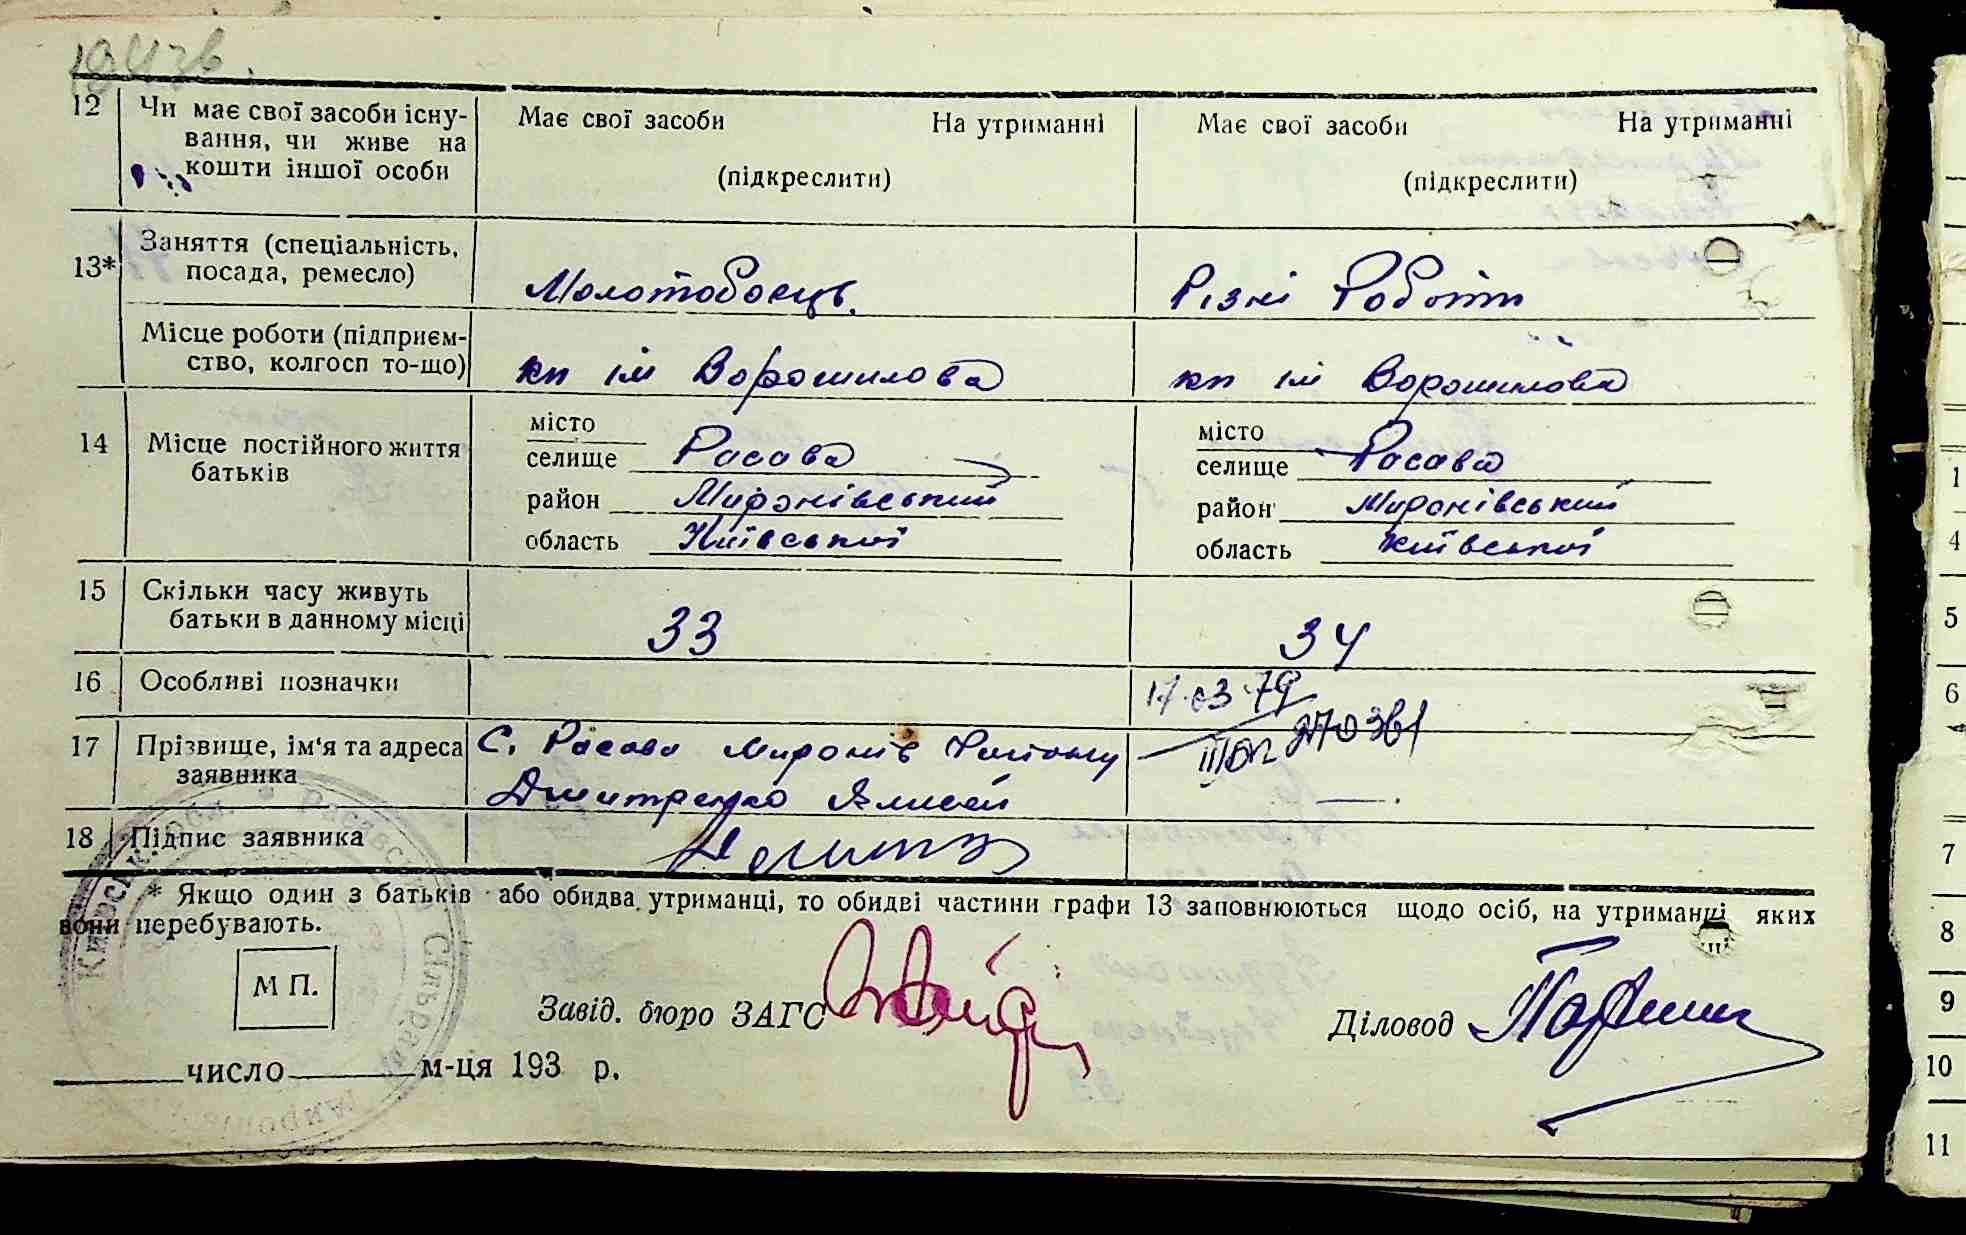 12 Чи має свої засоби існу-
вання, чи живе на
кошти іншої особи
Має свої засоби На утриманні
(підкреслити)
Має свої засоби На утриманні
(підкреслити)
13* Заняття (спеціальність,
посада, ремесло)
Молотобоець.
Різні Роботи
Місце роботи (підприєм-
ство, колгосп то-що)
кп ім Ворошилова
кп ім Ворошилова
14 Місце постійного життя
батьків
місто
селище Росава
район Миронівський
область Київської
місто
селище Росава
район Миронівський
область Київської
15 Скільки часу живуть
батьки в данному місці
33
34
16 Особливі позначки
17.03.79
17 Прізвище, ім'я та адреса
заявника
С. Росава Миронів Району
Дмитренко
18 Підпис заявника
* Якщо один з батьків або обидва утриманці, то обидві частини графи 13 заповнюються щодо осіб, на утриманні яких
вони перебувають.
М П.
Завід. бюро ЗАГС
Діловод
число м-ця 193 р.
1
4
5
6
7
8
9
10
11